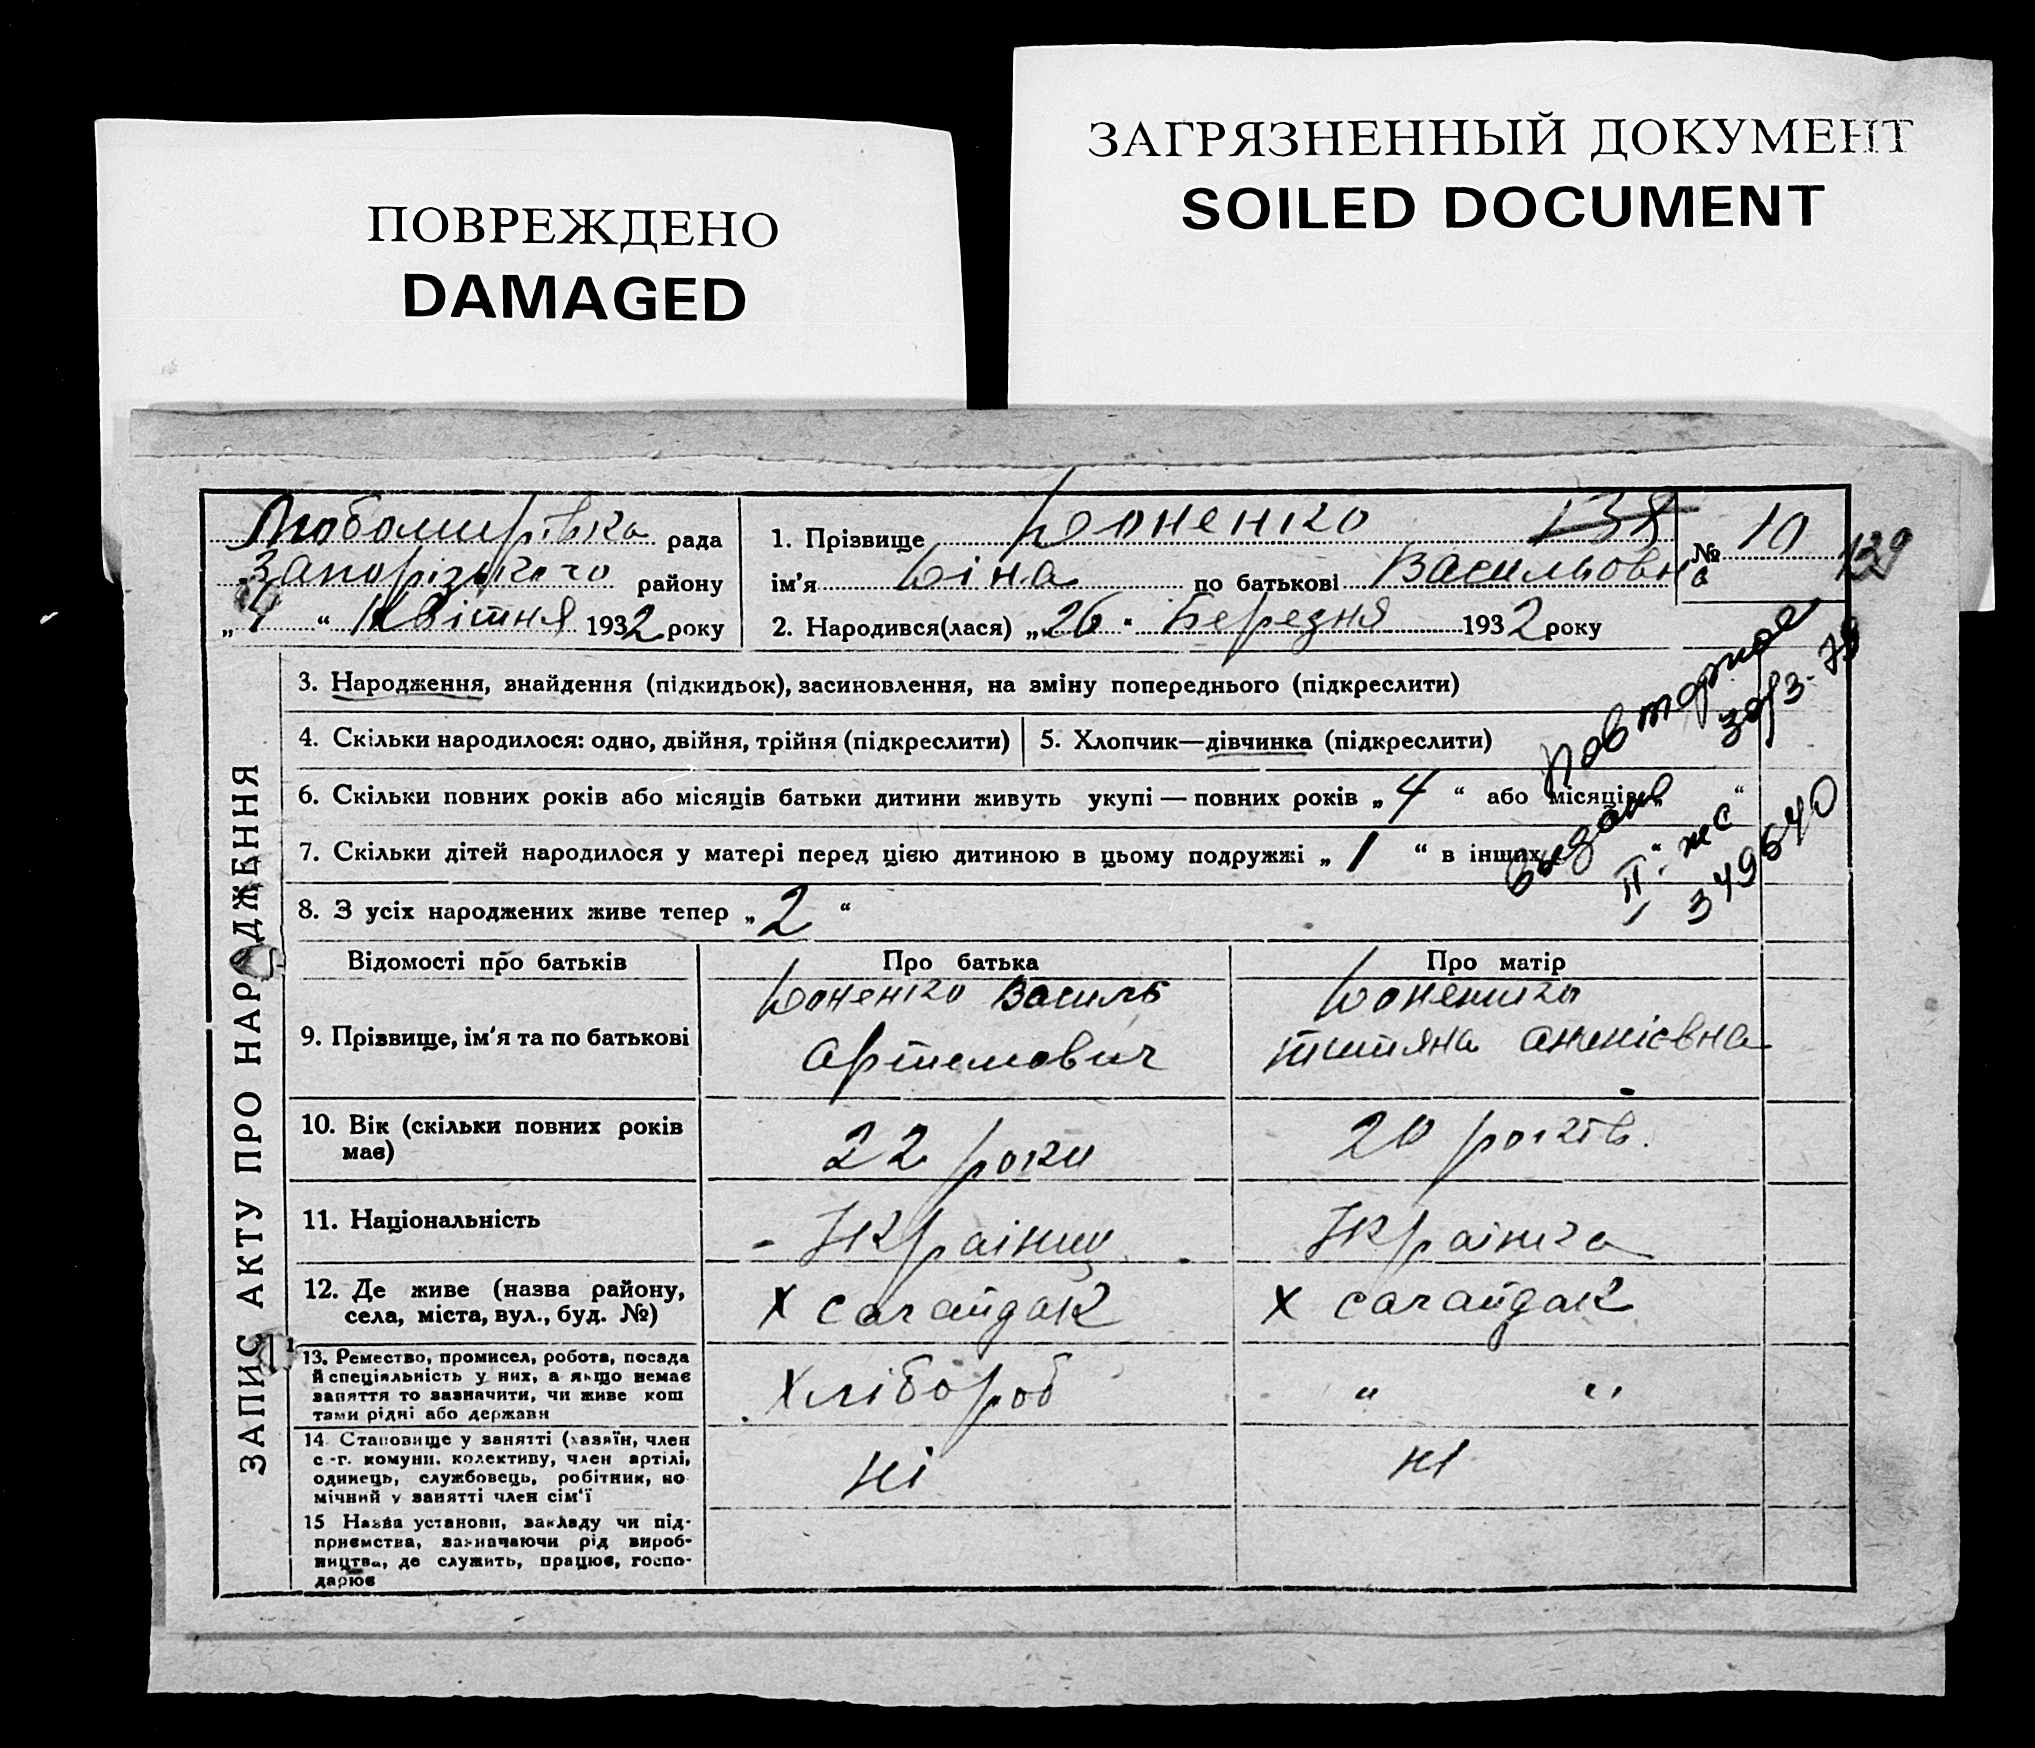 ПОВРЕЖДЕНО
DAMAGED
ЗАГРЯЗНЕННЫЙ ДОКУМЕНТ
SOILED DOCUMENT
Любомирівка рада
Запорізького району
„ 1 “ Квітня 1932 року
1. Прізвище 138
ім'я по батькові Васильовна
2. Народився(лася) „ 26 “ Березня 1932 року
№ 10
129
3. Народження, знайдення (підкидьок), засиновлення, на зміну попереднього (підкреслити)
4. Скільки народилося: одно, двійня, трійня (підкреслити)
5. Хлопчик—дівчинка (підкреслити)
6. Скільки повних років або місяців батьки дитини живуть укупі — повних років „ 4 “ або місяців „ “
7. Скільки дітей народилося у матері перед цією дитиною в цьому подружжі „ 1 “ в інших „ “
8. З усіх народжених живе тепер „ 2 “
повторное
выдано
II жс
349640
ЗАПИС АКТУ ПРО НАРОДЖЕННЯ
Відомості про батьків
Про батька
Про матір
9. Прізвище, ім'я та по батькові
Василь
Артемович
Татяна
10. Вік (скільки повних років
має)
22 роки
20 років.
11. Національність
Украінец
Украінка
12. Де живе (назва району,
села, міста, вул., буд. №)
х Сагайдак
х Сагайдак
13. Ремество, промисел, робота, посада
й спеціяльність у них, а якщо немає
заняття то зазначити, чи живе кош
тами рідні або держави
Хлібороб
„ „
14. Становище у занятті (хазяїн, член
с.-г. комуни, колективу, член артілі,
одинець, службовець, робітник, по
мічний у занятті член сім'ї
ні
ні
15 Назва установи, закладу чи під-
приємства, зазначаючи рід вироб-
ництва, де служить, працює, госпо-
дарює